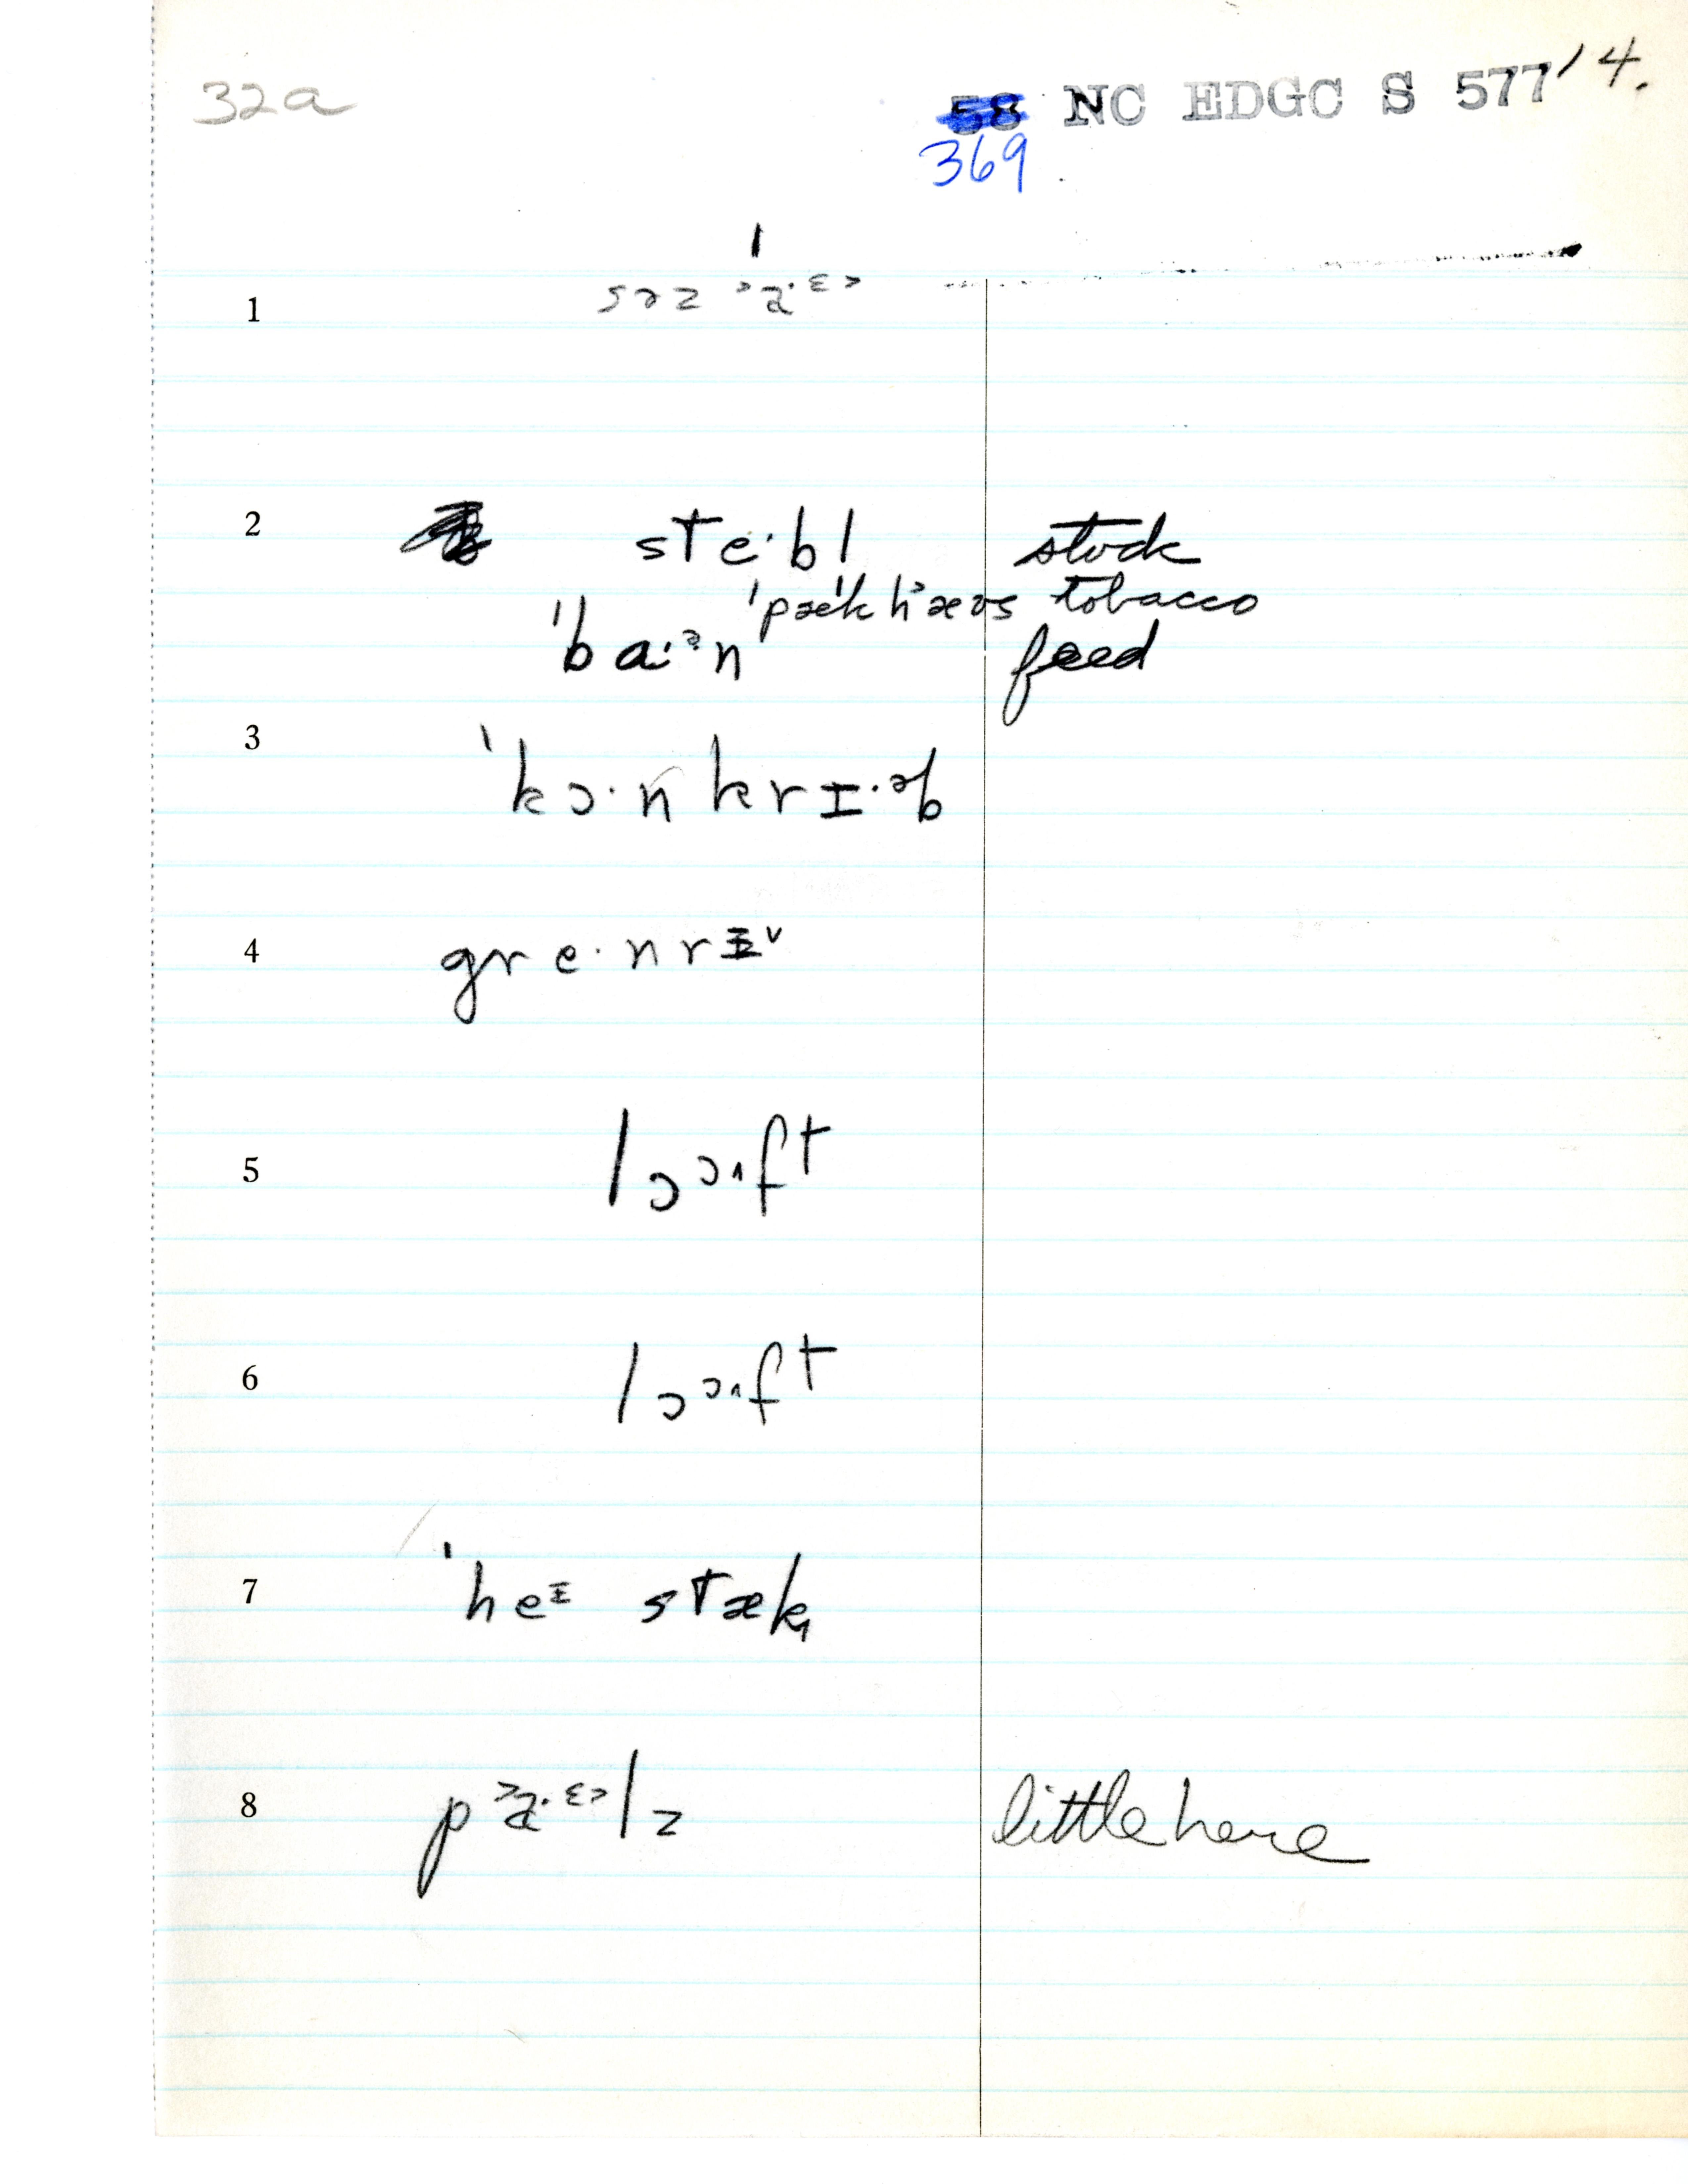 32a
58 NC EDGC S 577' 4.
369
1
2 steˑbl stock
ˈpækˈh˃æʊs tobacco
ˈbaˑᵊn feed
3 ˈkɔˑnkrɪˑᵊb
4 greˑnrɪ
5 lɔɔˑft
6 lɔɔˑft
7 ˈheᶦ stæk
8 little here